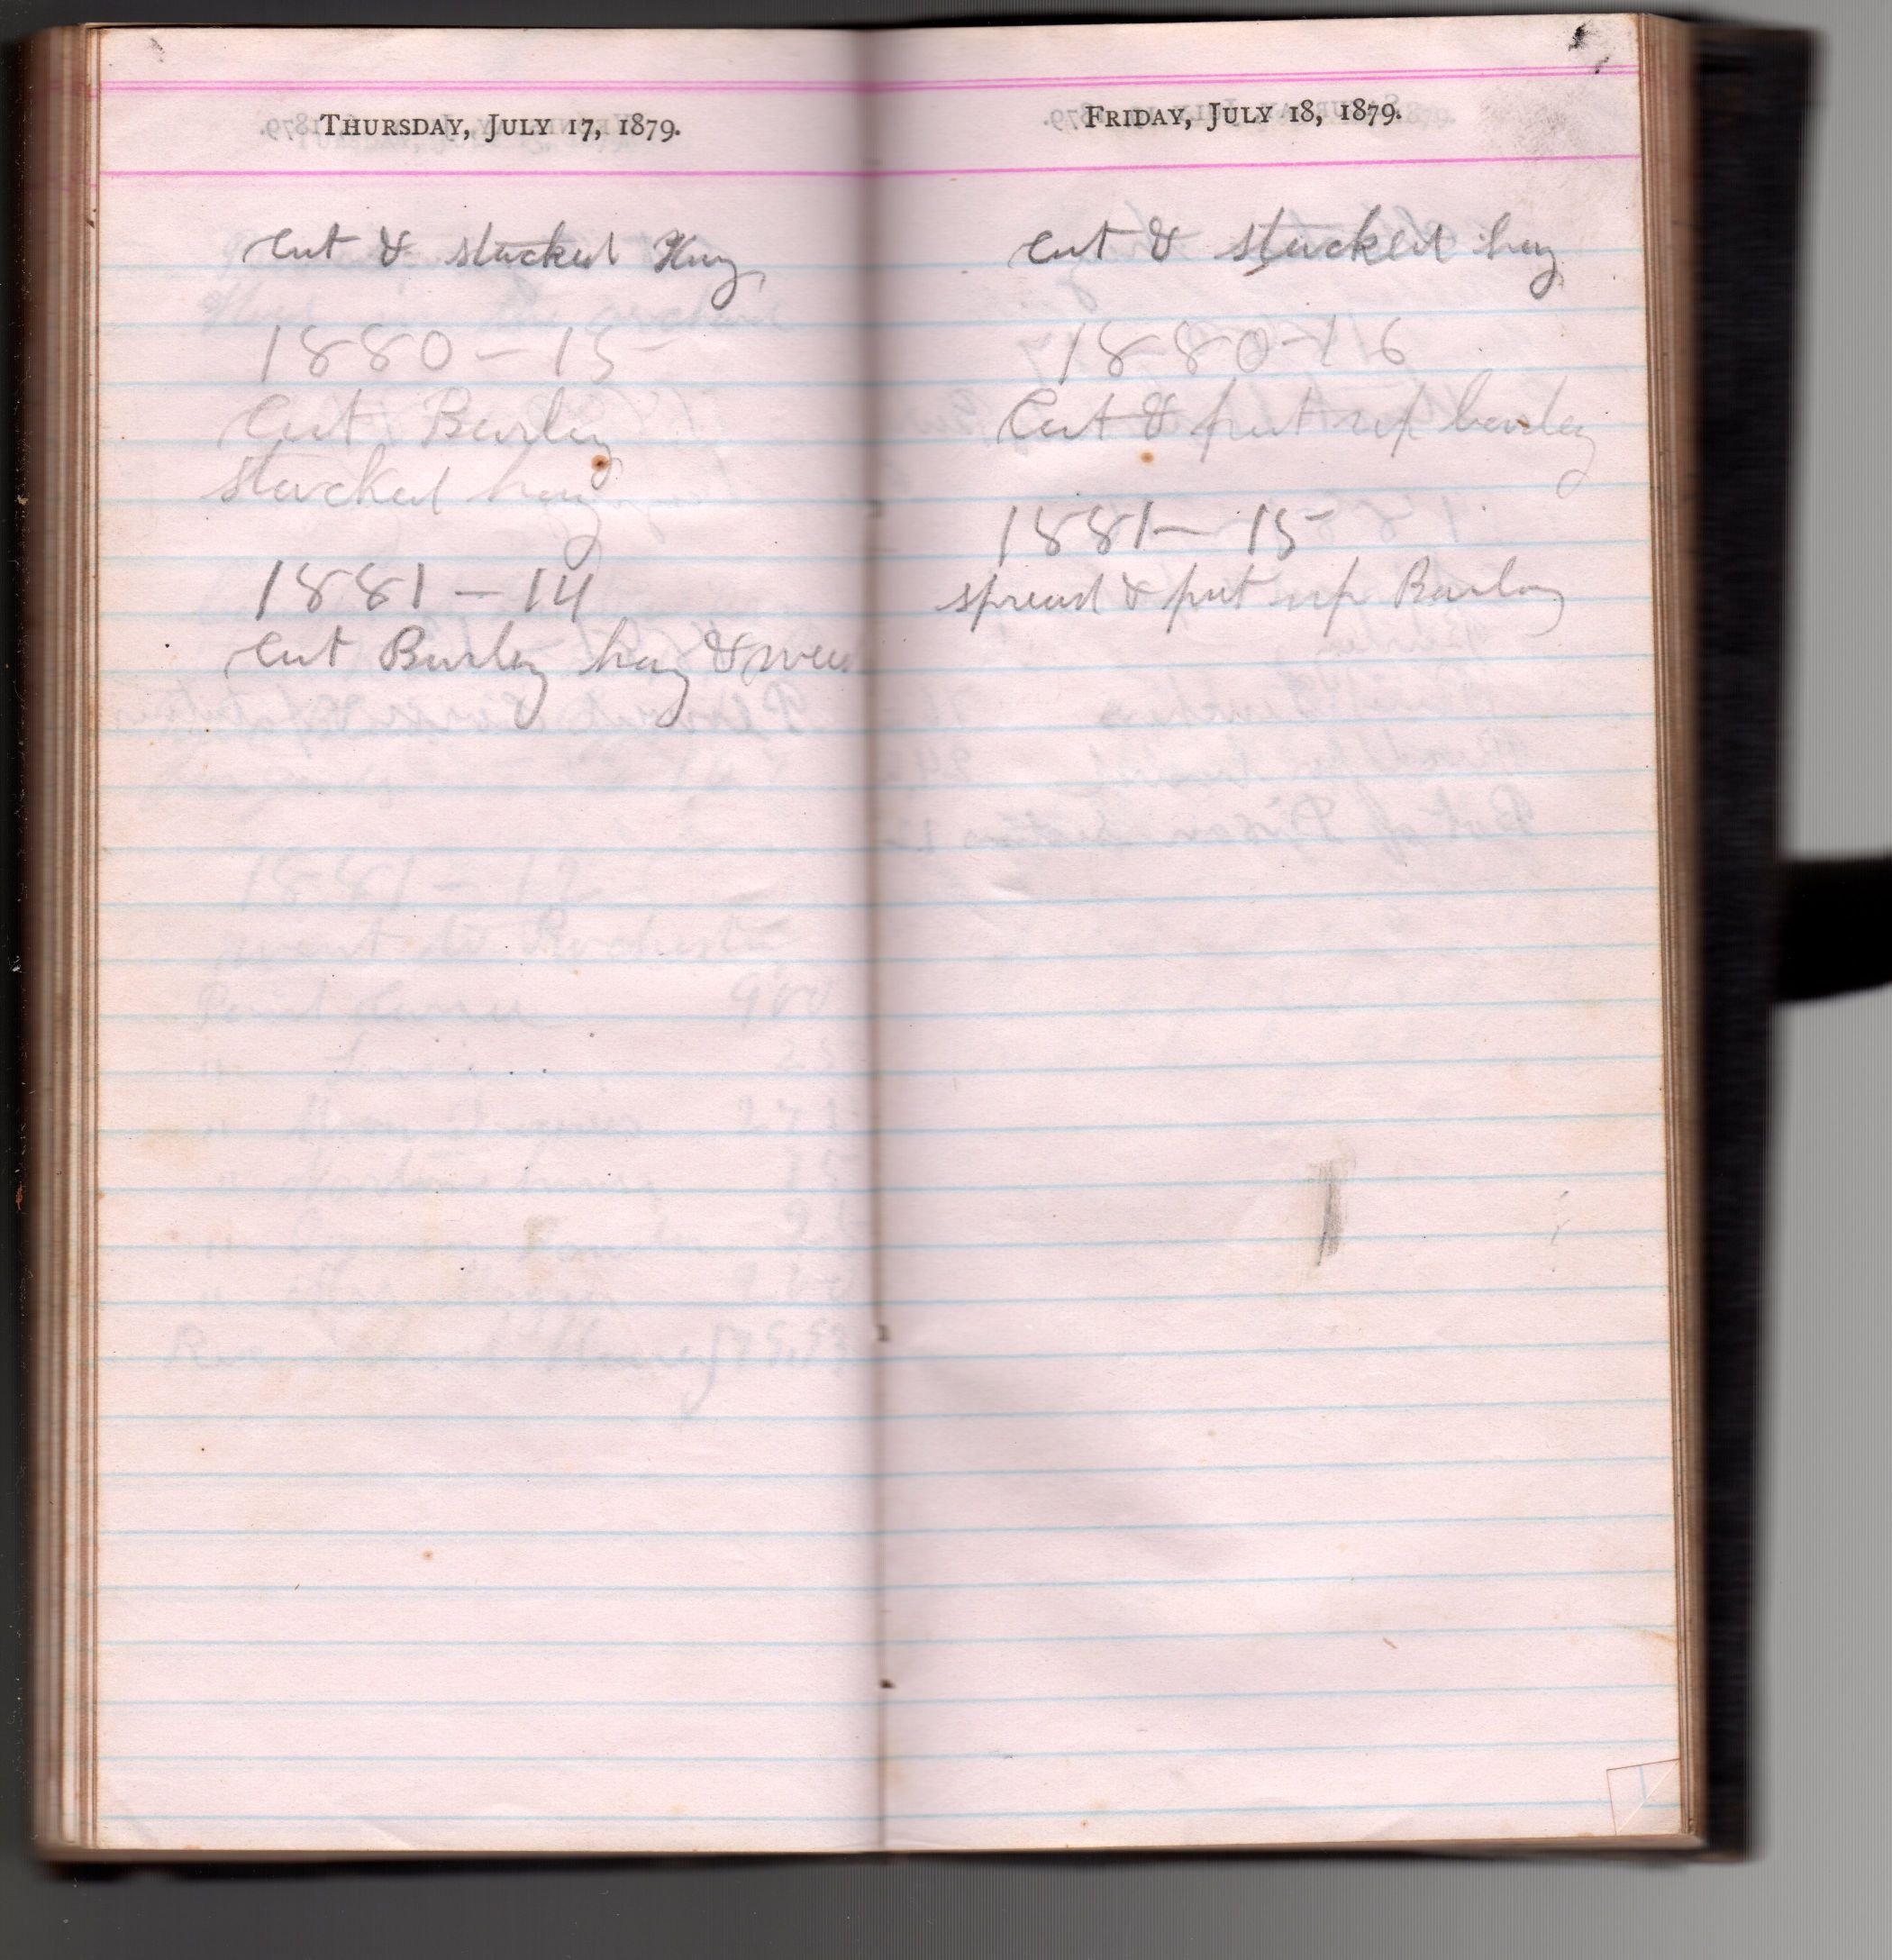 THURSDAY, JULY 17, 1879.
Cut & stacked Hay
1880 – 15
Cut Barley
stacked hay
1881 – 14
Cut Barley hay &
FRIDAY, JULY 18, 1879.
Cut & stacked hay
1880 – 16
Cut & put up barley
1881 – 15
spread & put up Barley